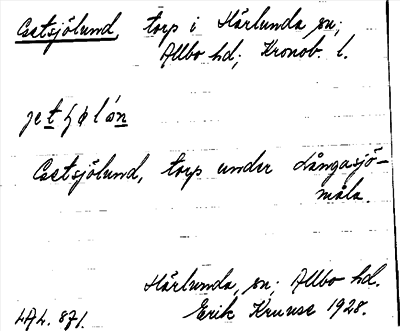 Castsjölund, torp i Härlunda sn;
Allbo hd; Kronob. l.
Castsjölund, torp under Långasjö-
måla.
Härlunda sn; Allbo hd.
LAL. 871. Erik Kruuse 1928.